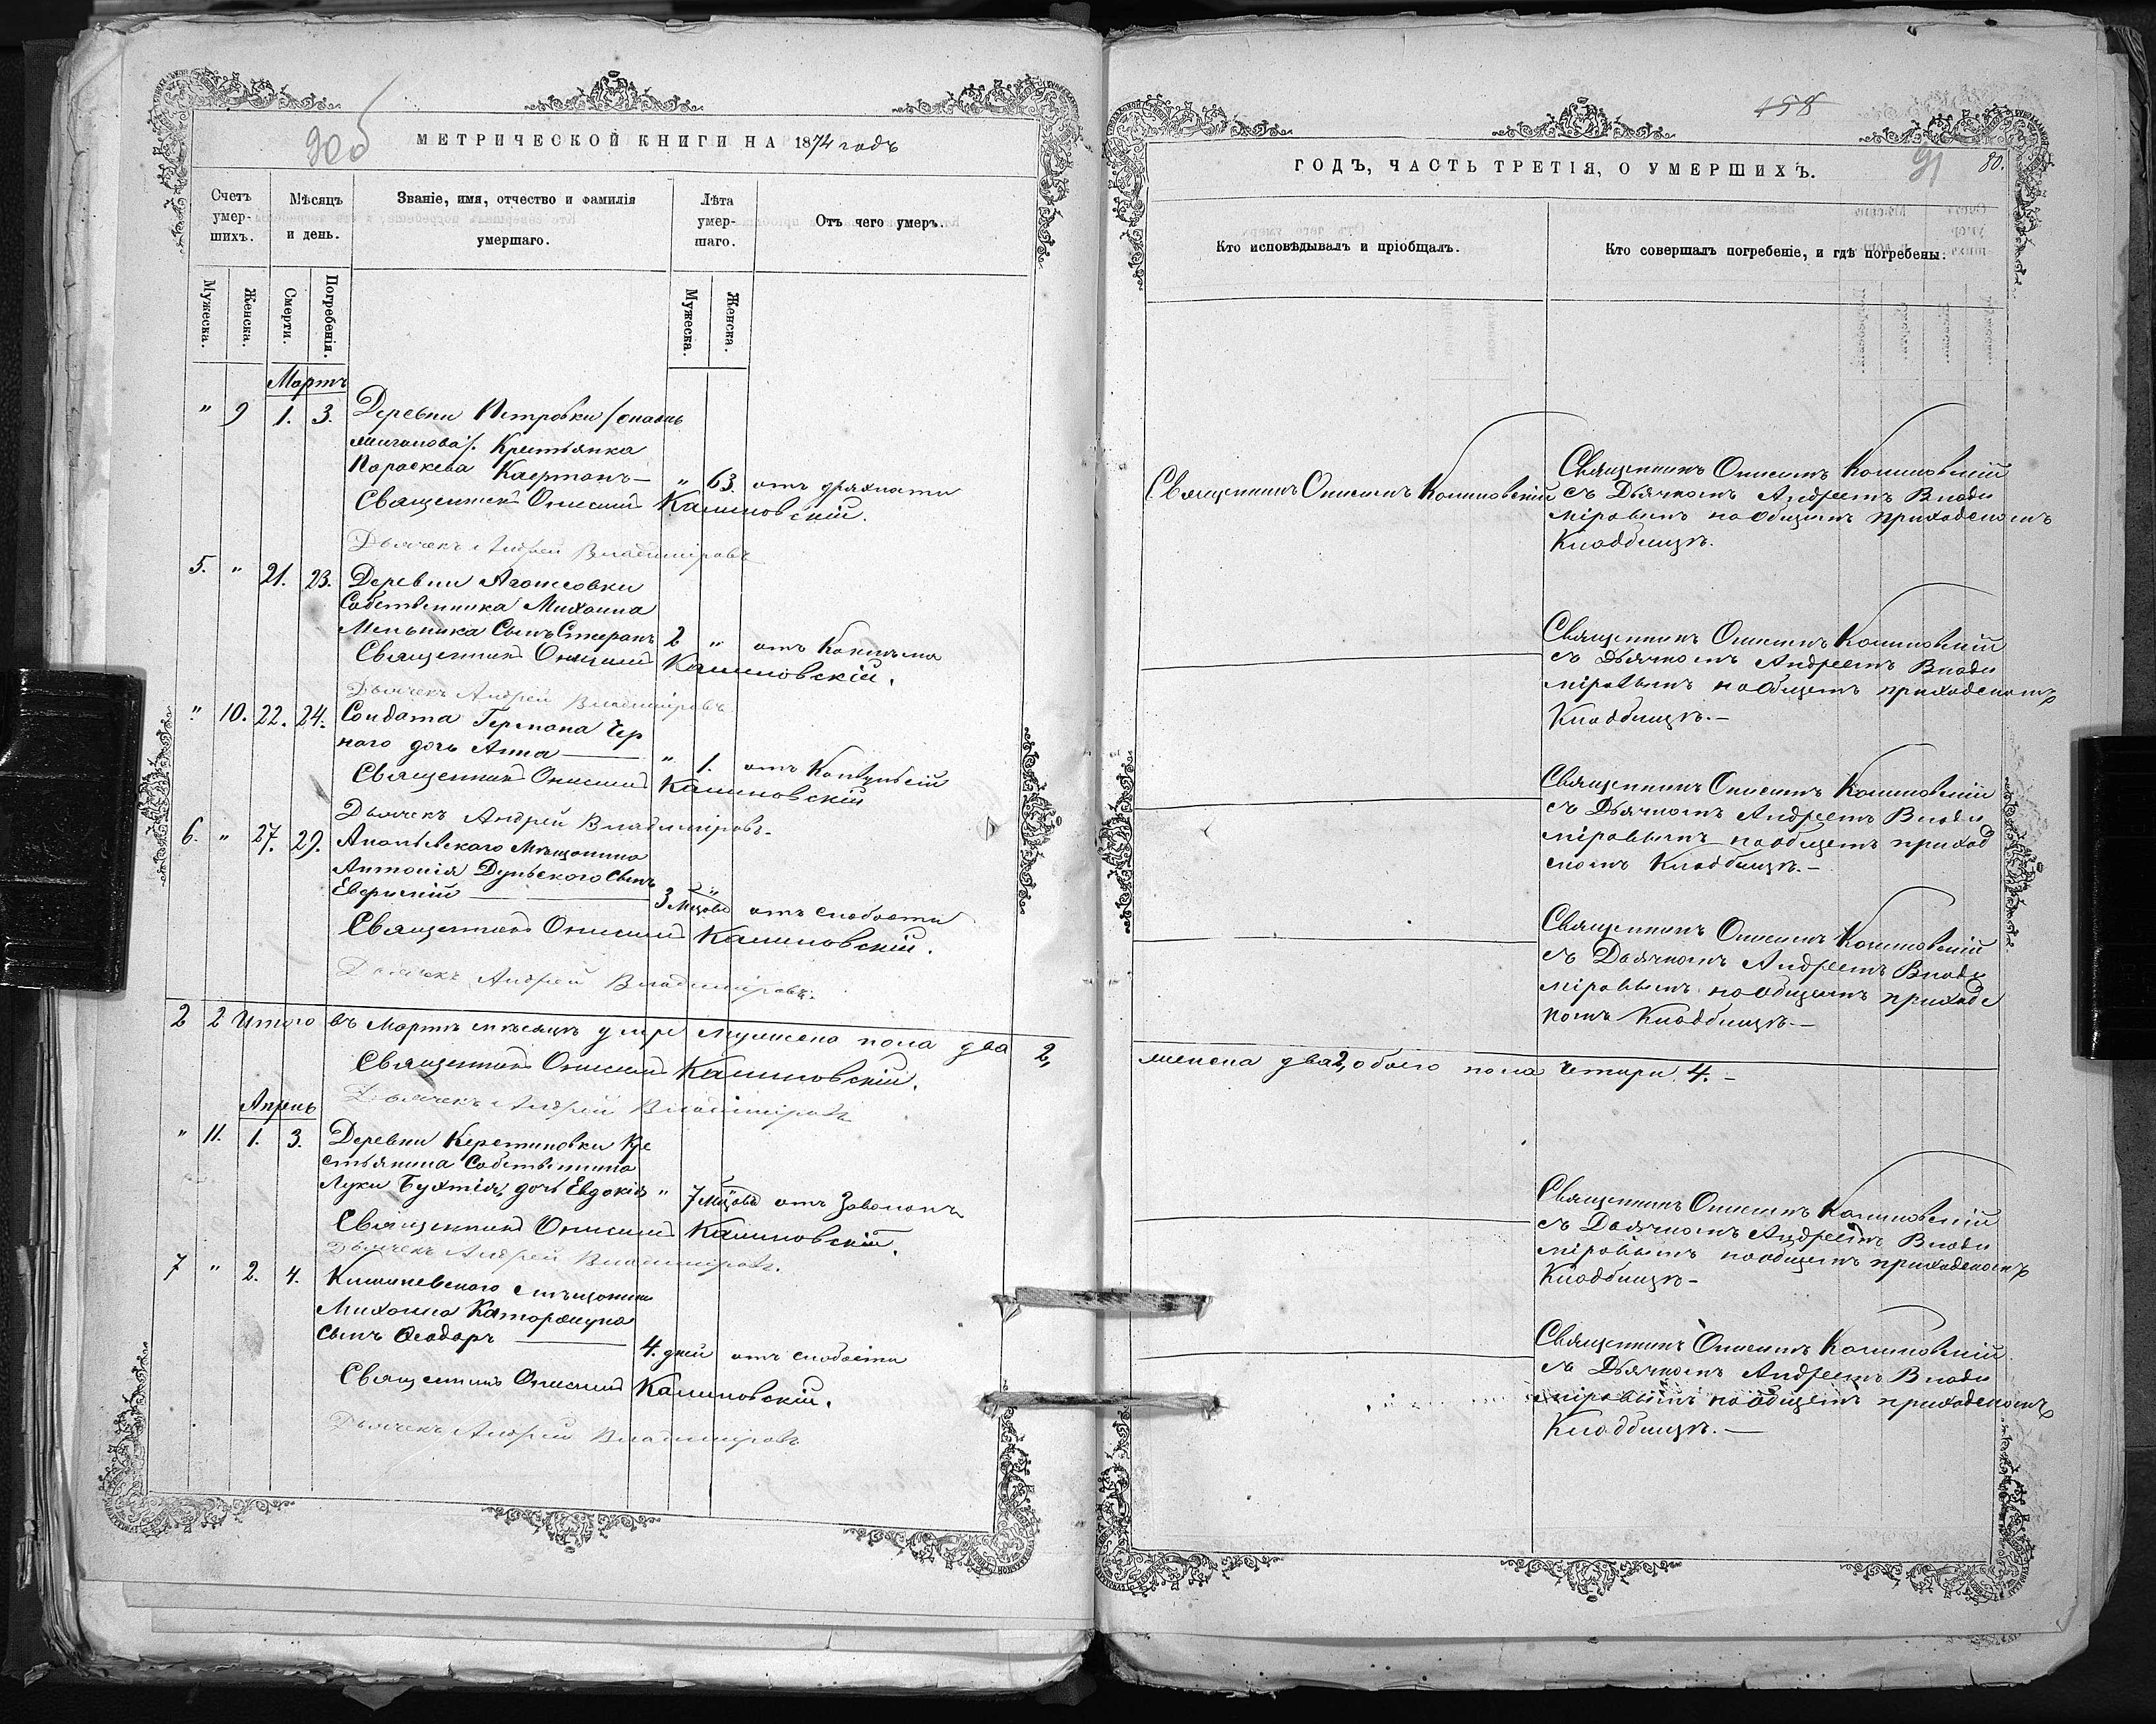 90об
МЕТРИЧЕСКОЙ КНИГИ НА 1874 годъ
Счетъ умер-шихъ.
Мѣсяцъ и день.
Званіе, имя, отчество и фамилія умершаго.
Лѣта умер-шаго.
Отъ чего умеръ.
Мужеска.
Женска.
Смерти.
Погребенія.
Мужеска.
Женска.
Мартъ
" 9 1. 3. Деревни Петровки
Крестьянка
Параскева " 63. отъ дряхлости
Священникъ Онисимъ Калиновскій.
Дьячекъ Андрей Владиміровъ
5. " 21. 23. Деревни
Собственника Михаила
Мельника Сынъ 2 " отъ
Священникъ Онисимъ Калиновскій.
Дьячекъ Андрей Владиміровъ
" 10. 22. 24. Солдата Германа Чер
наго дочь Анна " 1. отъ
Священникъ Онисимъ Калиновскій
Дьячекъ Андрей Владиміровъ.
6. " 27. 29. Ананьевскаго Мѣщанина
Антонія Дульскаго Сынъ
3 " отъ слабости
Священникъ Онисимъ Калиновскій.
Дьячекъ Андрей Владиміровъ.
2 2 Итого въ Мартѣ мѣсяцѣ умре мужеска пола два 2,
Священникъ Онисимъ Калиновскій.
Дьячекъ Андрей Владиміровъ
Апрель
" 11. 1. 3. Деревни Кре
стьянина Собственника
Луки дочь Евдокія " 7 отъ
Священникъ Онисимъ Калиновскій.
Дьячекъ Андрей Владиміровъ.
7 " 2. 4. Кишиневскаго мѣщанина
Михаила
сынъ Ѳеодоръ 4. дней отъ слабости
Священникъ Онисимъ Калиновскій.
Дьячекъ Андрей Владиміровъ
458
91
80.
ГОДЪ, ЧАСТЬ ТРЕТІЯ, О УМЕРШИХЪ.
Кто исповѣдывалъ и пріобщалъ.
Кто совершалъ погребеніе, и гдѣ погребены.
Священникъ Онисимъ Калиновскій
Священникъ Онисимъ Калиновскій
съ Дьячкомъ Андреемъ Влади
міровымъ на общемъ приходскомъ
Кладбищѣ.
Священникъ Онисимъ Калиновскій
съ Дьячкомъ Андреемъ Влади
міровымъ на общемъ приходскомъ
Кладбищѣ.—
Священникъ Онисимъ Калиновскій
съ Дьячкомъ Андреемъ Влади
міровымъ на общемъ приход
скомъ Кладбищѣ.—
Священникъ Онисимъ Калиновскій
съ Дьячкомъ Андреемъ Влади
міровымъ на общемъ приходс
комъ Кладбищѣ.—
женска два 2, обоего пола четыри 4.—
Священникъ Онисимъ Калиновскій
съ Дьячкомъ Андреемъ Влади
міровымъ на общемъ приходскомъ
Кладбищѣ—
Священникъ Онисимъ Калиновскій
съ Дьячкомъ Андреемъ Влади
міровымъ на общемъ приходскомъ
Кладбищѣ.—